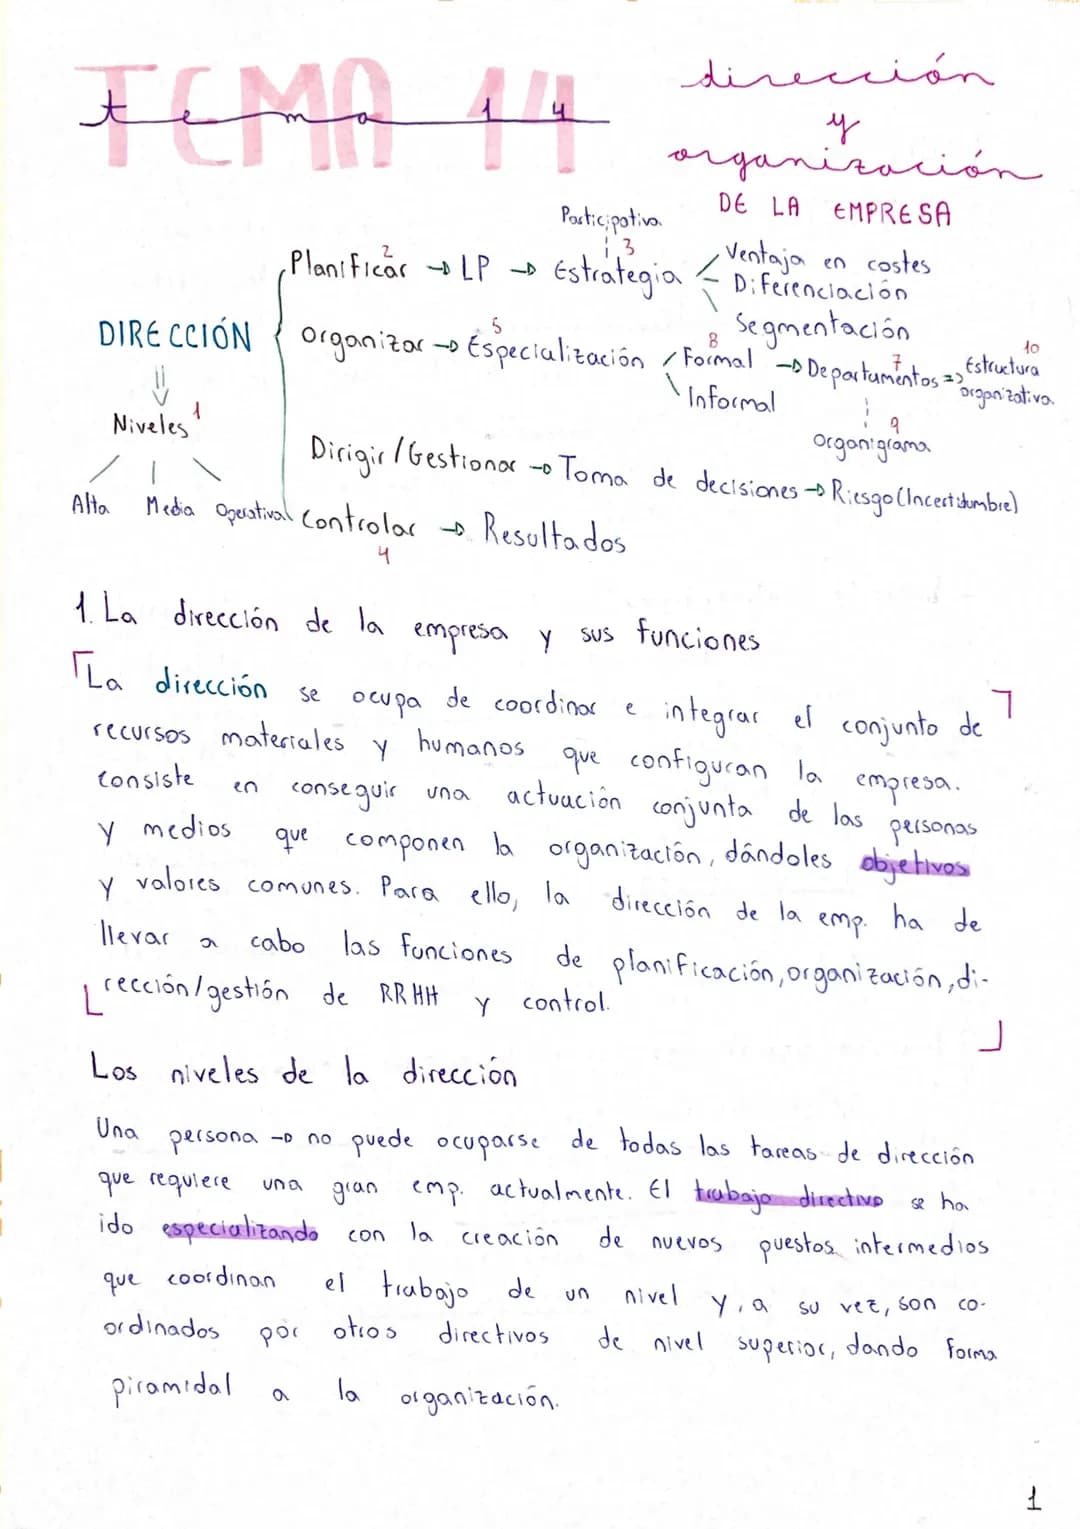 TEMA 14
tema 14
dirección
y
organización
DE LA EMPRESA
Participativa
2 3
Planificar → LP → Estrategia
Ventaja en costes
Diferenciación
Segmentación
DIRECCIÓN
5 8 7 10
Organizar → Especialización Formal → Departamentos => Estructura organizativa
Informal
9
Organigrama
Niveles 1
Dirigir/Gestionar → Toma de decisiones → Riesgo (Incertidumbre)
Alta Media Operativa
Controlar → Resultados
4
1. La dirección de la empresa y sus funciones
La dirección se ocupa de coordinar e integrar el conjunto de
recursos materiales y humanos que configuran la empresa.
Consiste en conseguir una actuación conjunta de las personas
y medios que componen la organización, dándoles objetivos
y valores comunes. Para ello, la dirección de la emp. ha de
llevar a cabo las funciones de planificación, organización, di-
rección/gestión de RRHH y control.
Los niveles de la dirección
Una persona → no puede ocuparse de todas las tareas de dirección
que requiere una gran emp. actualmente. El trabajo directivo se ha
ido especializando con la creación de nuevos puestos intermedios
que coordinan el trabajo de un nivel y, a su vez, son co-
ordinados por otros directivos de nivel superior, dando forma
piramidal a la organización.
1